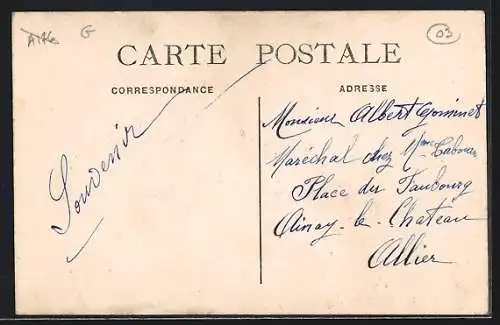 G
03
CARTE POSTALE
CORRESPONDANCE
ADRESSE
Souvenir
Monsieur Albert
Maréchal chez Mme
Place du Faubourg
Ainay-le-Chateau
Allier